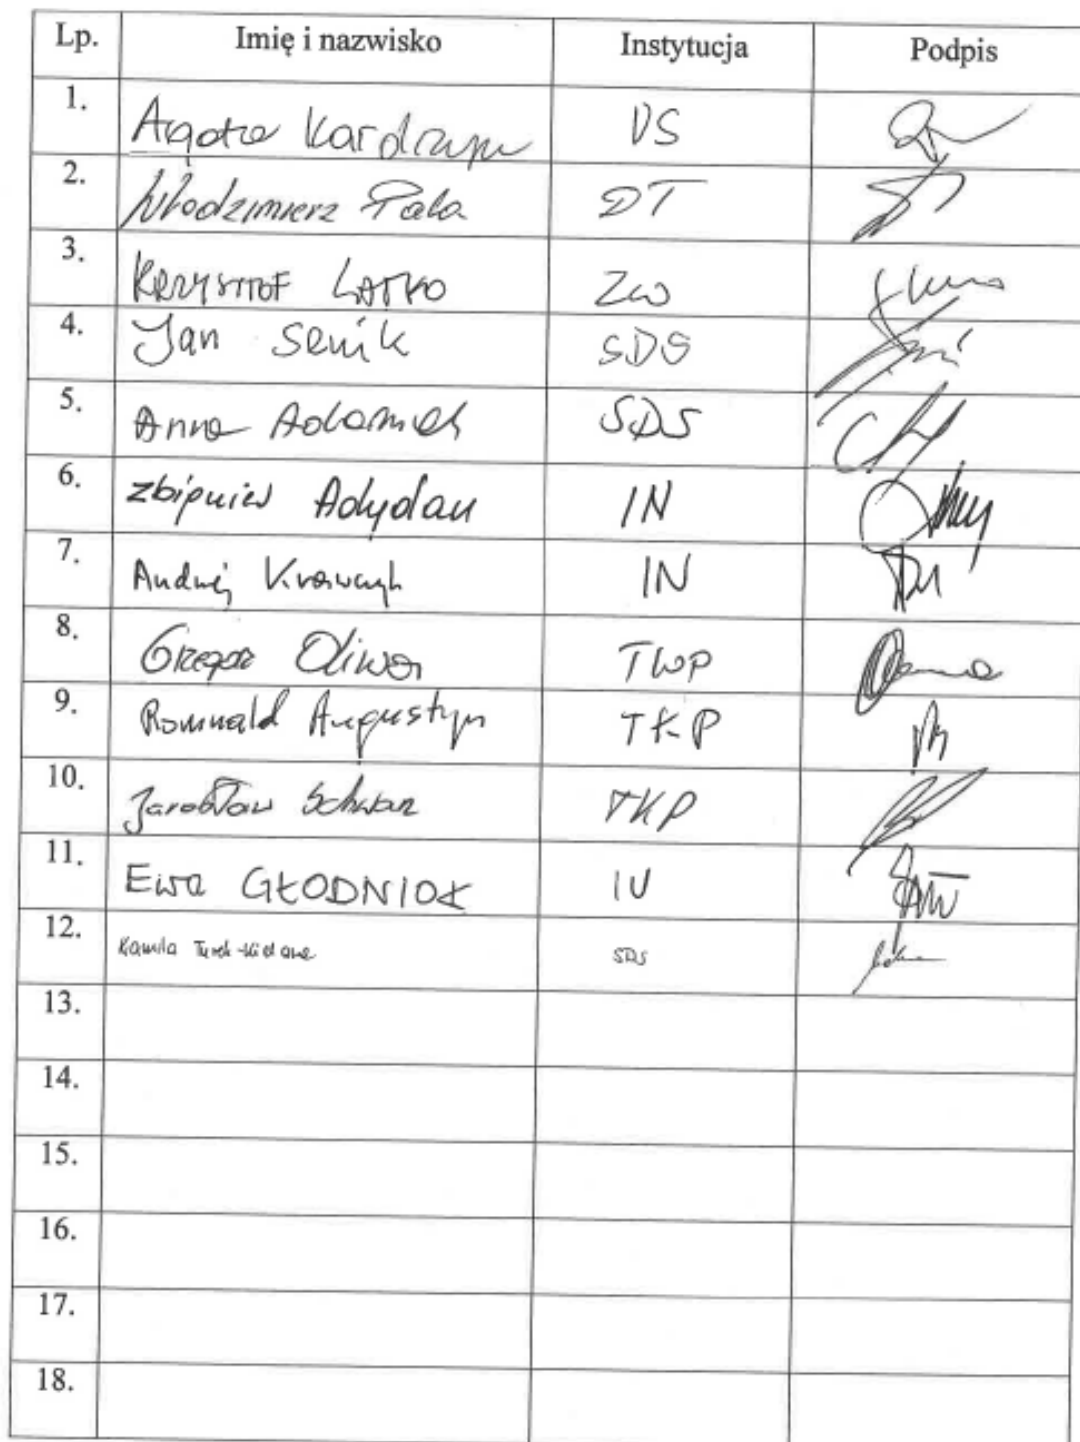 Lp. Imię i nazwisko Instytucja Podpis
1. Agata VS
2. Włodzimierz Pala DT
3. KRZYSZTOF LATKO ZW
4. Jan Senik SDS
5. Anna Adamiek SDS
6. Zbigniew Adydan IN
7. Andrzej Krawczyk IN
8. Grzegorz Oliwa TWP
9. Romuald Augustyn TKP
10. Jarosław Schwarz TKP
11. Ewa GŁODNIOK IU
12. Kamila Turek- SDS
13.
14.
15.
16.
17.
18.